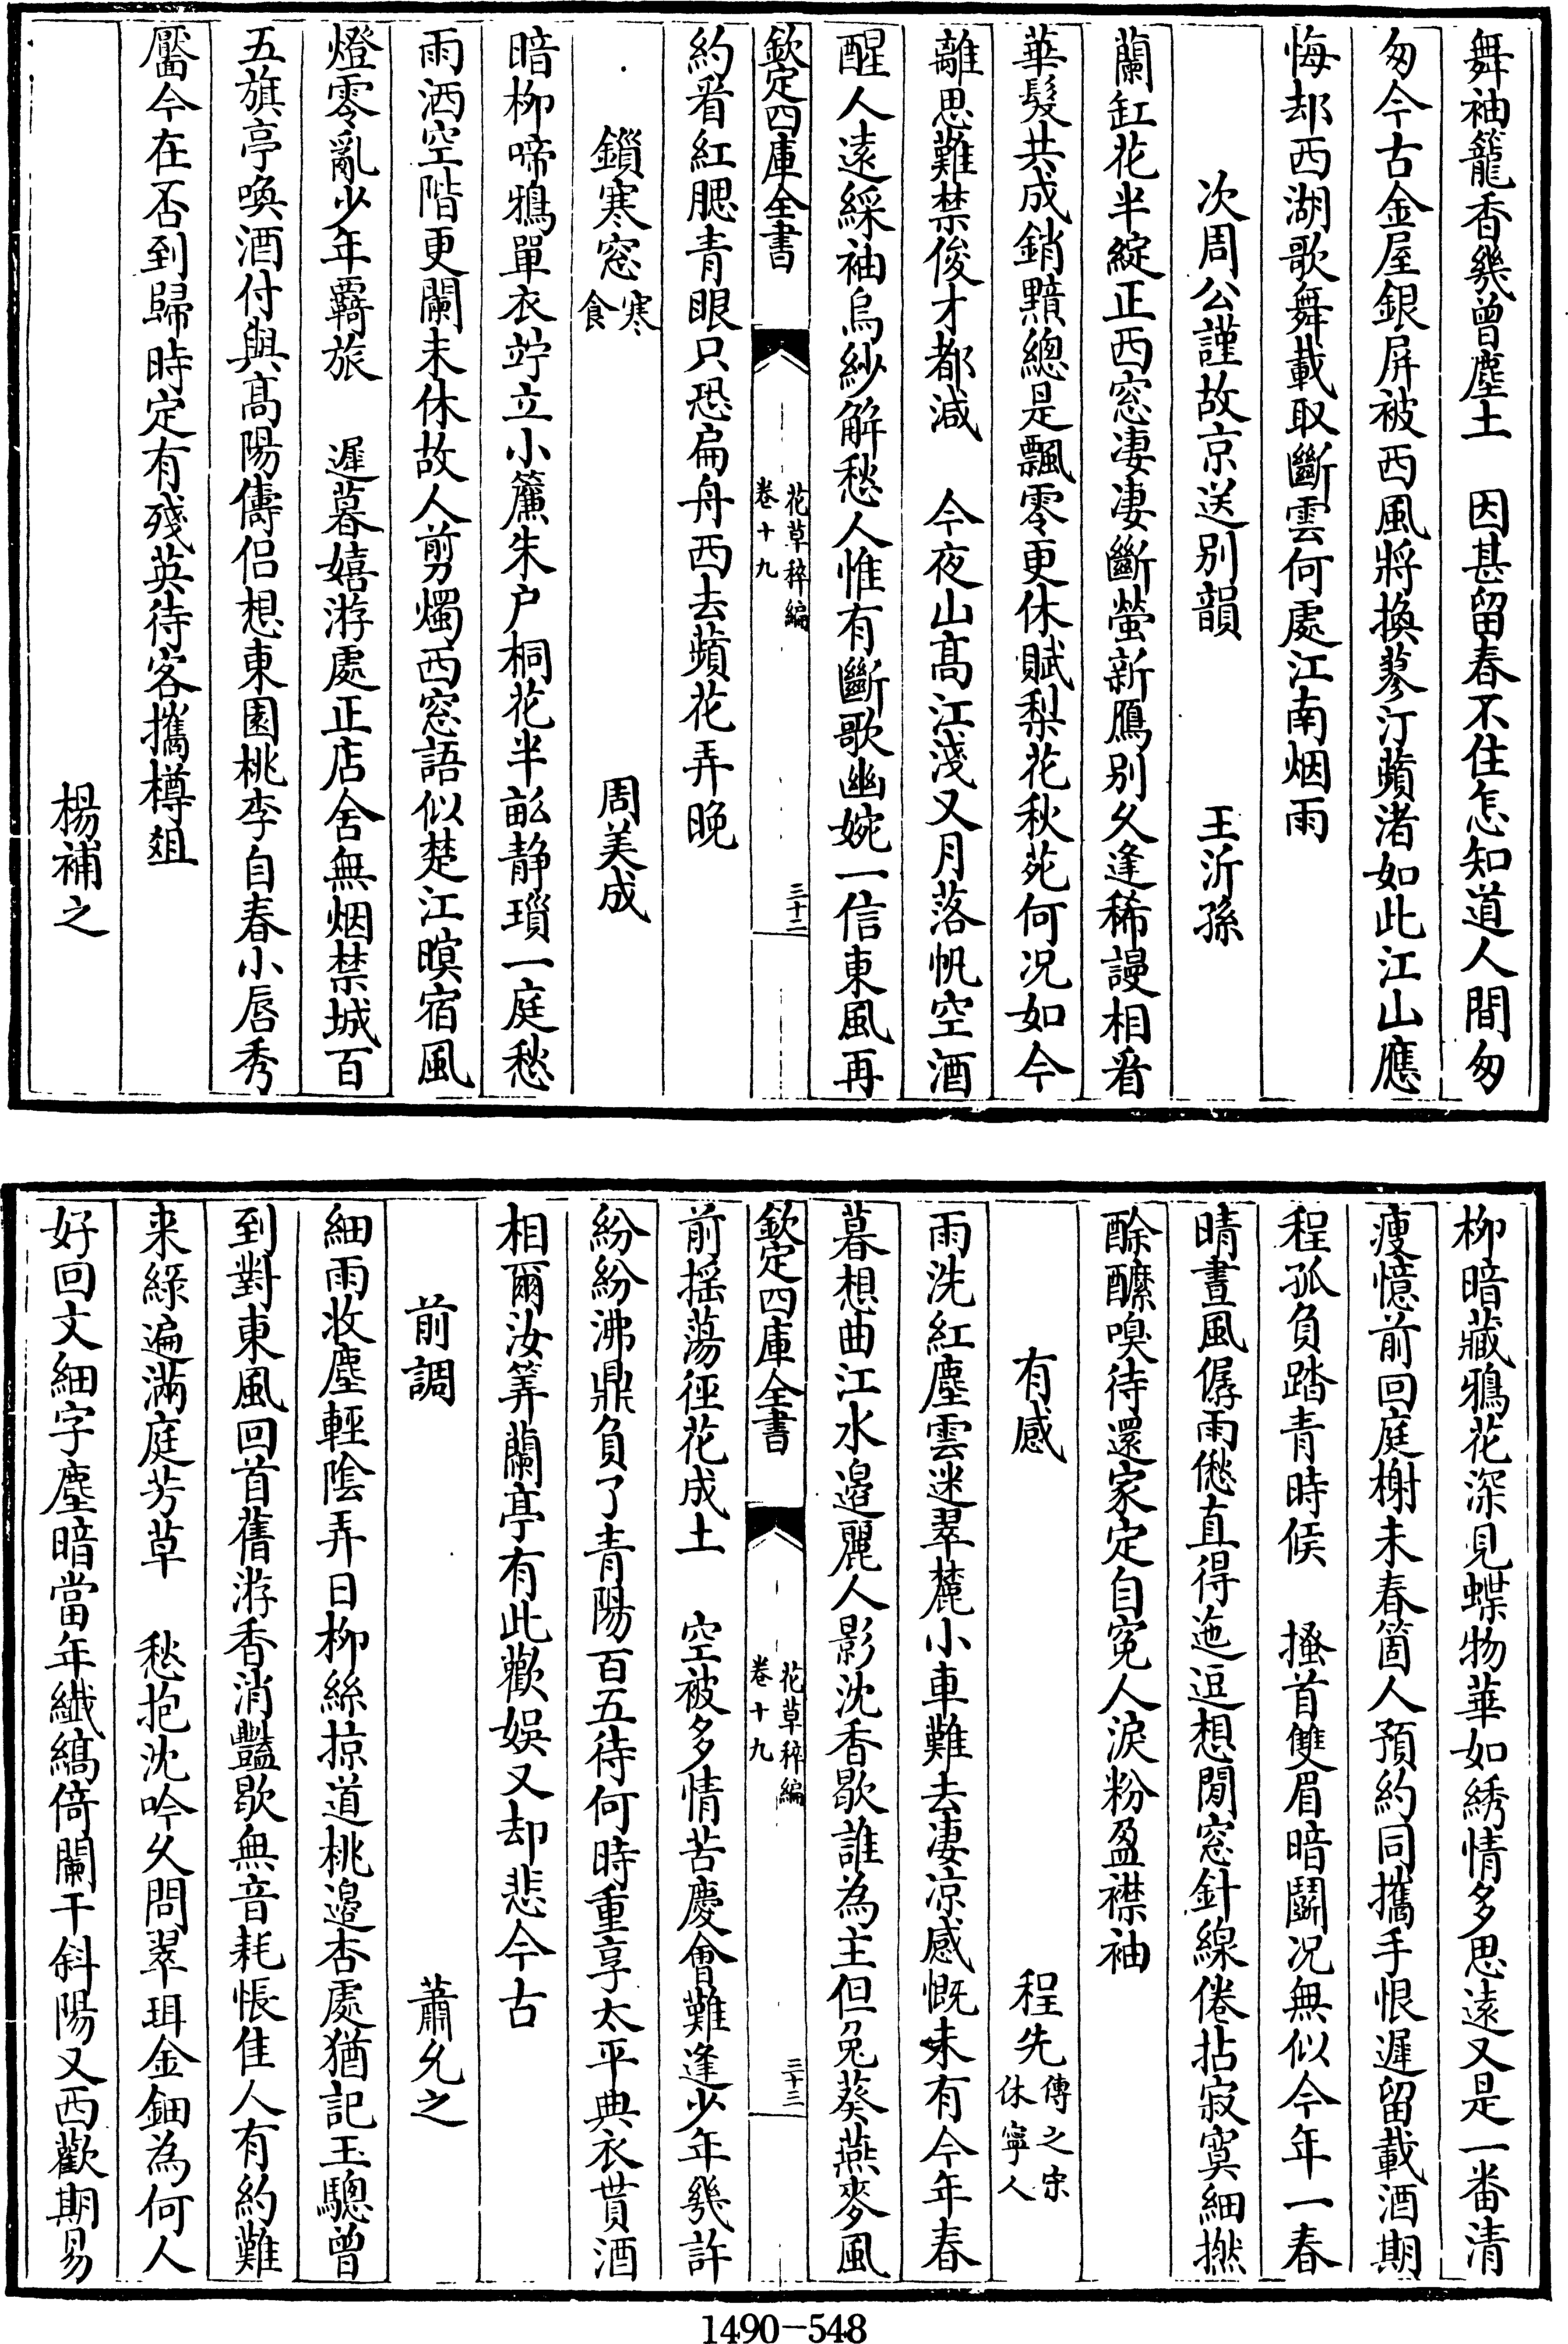 舞袖籠香幾曾塵土　因甚留春不住怎知道人間匆
匆今古金屋銀屏被西風將換蓼汀蘋渚如此江山應
悔却西湖歌舞載取斷雲何處江南烟雨
次周公謹故京送别韻　王沂孫
蘭缸花半綻正西窓凄凄斷螢新鴈别久逢稀謾相看
華髪共成銷黯總是飄零更休賦梨花秋苑何况如今
離思難禁俊才都减　今夜山髙江淺又月落帆空酒
醒人遠綵袖烏紗解愁人惟有斷歌幽婉一信東風再
欽定四庫全書　花草稡編 卷十九　三十二
約看紅腮青眼只恐扁舟西去蘋花弄晚
鎻寒窓寒食　周美成
暗柳啼鴉單衣竚立小簾朱户桐花半畝静瑣一庭愁
雨洒空階更闌未休故人剪燭西窓語似楚江暝宿風
燈零亂少年羇旅　遲暮嬉游處正店舍無烟禁城百
五旗亭喚酒付與髙陽儔侣想東園桃李自春小唇秀
靨今在否到歸時定有殘英待客攜樽俎
楊補之
柳暗藏鴉花深見蝶物華如綉情多思遠又是一番清
瘦憶前回庭榭未春箇人預約同攜手恨遲留載酒期
程孤負踏青時候　搔首雙眉暗鬭况無似今年一春
晴晝風僝雨僽直得迤逗想閒窓針線倦拈寂寞細撚
酴醿嗅待還家定自寃人淚粉盈襟袖
有感　程先傳之宋休寧人
雨洗紅塵雲迷翠麓小車難去凄凉感慨未有今年春
暮想曲江水邉麗人影沈香歇誰為主但兔葵燕麥風
欽定四庫全書　花草稡編 卷十九　三十三
前摇蕩徑花成土　空被多情苦慶會難逢少年幾許
紛紛沸鼎負了青陽百五待何時重享太平典衣貰酒
相爾汝筭蘭亭有此歡娱又却悲今古
前調　蕭允之
細雨收塵輕陰弄日柳絲掠道桃邉杏處猶記玉驄曾
到對東風回首舊游香消豔歇無音耗悵佳人有約難
来緑遍滿庭芳草　愁抱沈吟久問翠珥金鈿為何人
好回文細字塵暗當年纎縞倚闌干斜陽又西歡期易
1490-548